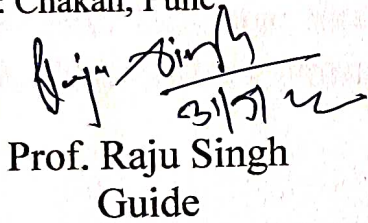 : Chakan, Pune
Raju Singh
Prof. Raju Singh
Guide